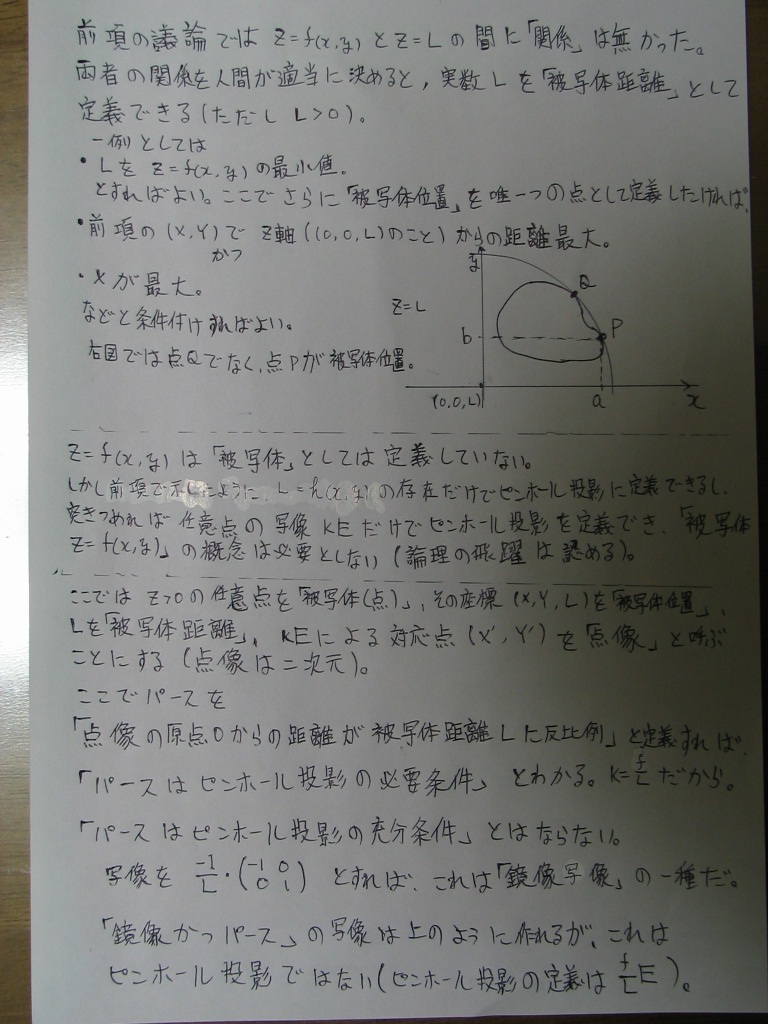 前項の議論では z=f(x,y) と z=L の間に「関係」は無かった。
両者の関係を人間が適当に決めると, 実数 L を「被写体距離」として
定義できる (ただし L>0)。
一例としては
・L を z=f(x,y) の最小値。
とすればよい。ここでさらに「被写体位置」を唯一つの点として定義したければ、
・前項の (X,Y) で z軸 ((0,0,L)のこと) からの距離最大。
かつ
・xが最大。
などと条件付けすればよい。
右図では点Qでなく、点Pが被写体位置。
y
Q
z=L
b
P
(0,0,L)
a
x
z=f(x,y) は「被写体」としては定義していない。
しかし前項で示したように、L=h(x,y) の存在だけでピンホール投影に定義できるし、
突きつめれば任意点の写像 kE だけでピンホール投影を定義でき、「被写体
z=f(x,y)」の概念は必要としない (論理の飛躍は認める)。
ここでは z>0 の任意点を「被写体(点)」, その座標 (X,Y,L) を「被写体位置」,
Lを「被写体距離」, kE による対応点 (X',Y') を「点像」と呼ぶ
ことにする (点像は二次元)。
ここでパースを
「点像の原点Oからの距離が被写体距離Lに反比例」と定義すれば、
「パースはピンホール投影の必要条件」とわかる。k=f/L だから。
「パースはピンホール投影の充分条件」とはならない。
写像を -1/L・(-1 0 / 0 1) とすれば、これは「鏡像写像」の一種だ。
「鏡像かつパース」の写像は上のように作れるが、これは
ピンホール投影ではない (ピンホール投影の定義は f/L E)。